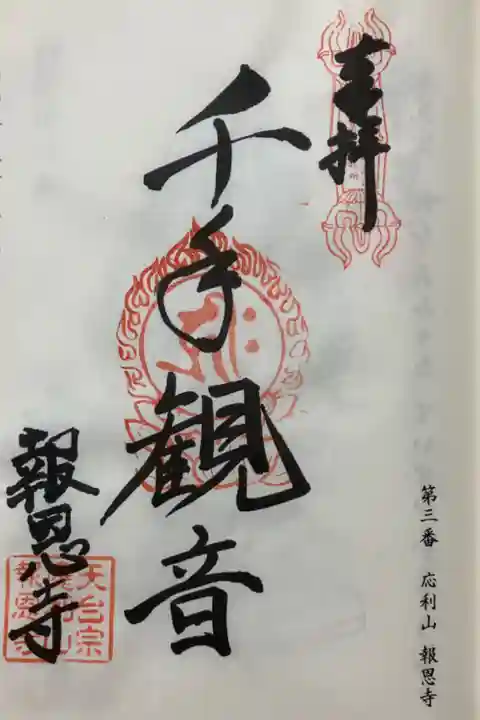 第三番 応利山 報恩寺
奉拝
千手観音
報恩寺
天台宗